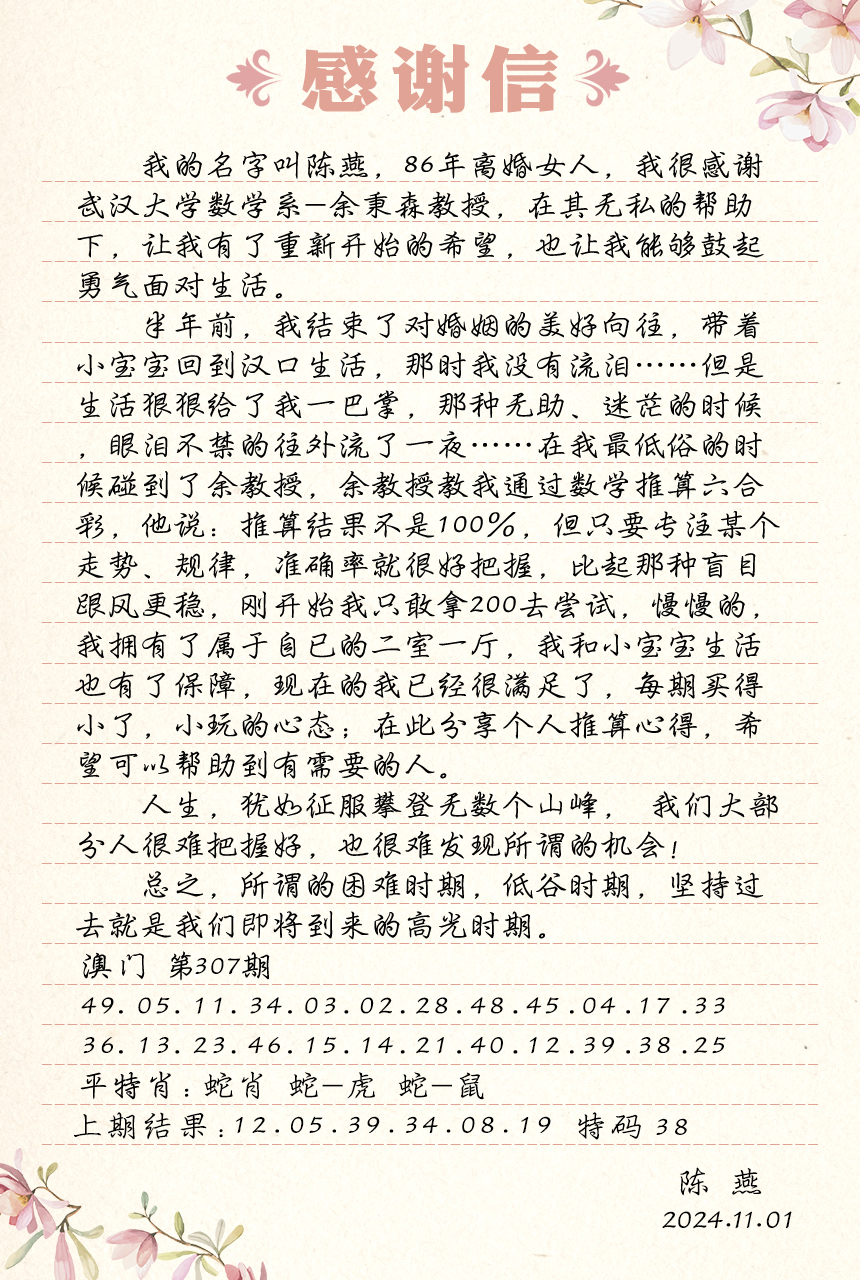 感谢信
我的名字叫陈燕，86年离婚女人，我很感谢
武汉大学数学系—余秉森教授，在其无私的帮助
下，让我有了重新开始的希望，也让我能够鼓起
勇气面对生活。
半年前，我结束了对婚姻的美好向往，带着
小宝宝回到汉口生活，那时我没有流泪……但是
生活狠狠给了我一巴掌，那种无助、迷茫的时候
，眼泪不禁的往外流了一夜……在我最低俗的时
候碰到了余教授，余教授教我通过数学推算六合
彩，他说：推算结果不是100%，但只要专注某个
走势、规律，准确率就很好把握，比起那种盲目
跟风更稳，刚开始我只敢拿200去尝试，慢慢的，
我拥有了属于自已的二室一厅，我和小宝宝生活
也有了保障，现在的我已经很满足了，每期买得
小了，小玩的心态；在此分享个人推算心得，希
望可以帮助到有需要的人。
人生，犹如征服攀登无数个山峰， 我们大部
分人很难把握好，也很难发现所谓的机会！
总之，所谓的困难时期，低谷时期，坚持过
去就是我们即将到来的高光时期。
澳门 第307期
49.05.11.34.03.02.28.48.45.04.17.33
36.13.23.46.15.14.21.40.12.39.38.25
平特肖：蛇肖 蛇—虎 蛇—鼠
上期结果：12.05.39.34.08.19 特码 38
陈 燕
2024.11.01